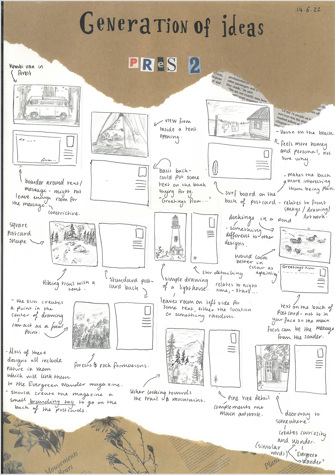 14.6.22
Generation of ideas
PRES 2
Kombi van in
forest
- border around text/
message - might not
leave enough room for
the message,
constrictive.
view from
inside a tent
opening.
Basic back -
could put some
text on the back
maybe for ex.
Greetings from...
- House on the beach
- feels more homey
and personal, not
sure why.
- makes the back
more interesting
than being plain.
surf board on the
back of postcard - relates to front
image / drawing /
artwork.
Square
postcard
shape
Hiking trail with a
tent.
standard post-
card back
simple drawing
of a lighthouse.
star detailing
relates to night
time, start...
leaves room on left side for
some text, either the location
or something random.
ducklings in a pond
- something
different to other
designs.
would look
better in
colour as
opposing
Greetings from
text on the back of
postcard - not to in
your face so the main
focus can be the message
from the sender.
- the sun creates
a point in the
center of drawing
can act as a focal
point.
Forests & rock formations.
- Most of these
designs all include
nature in them
which will link them
to the Evergreen Wander magazine.
- should create the magazine a
small branding tag to go on the
back of the postcards.
View looking towards
the trail & mountains.
Pine tree detail
compliments the
main artwork.
doorway to
somewhere?
creates curiosity
and wonder.
(similar
words)
"Evergreen
Wander"